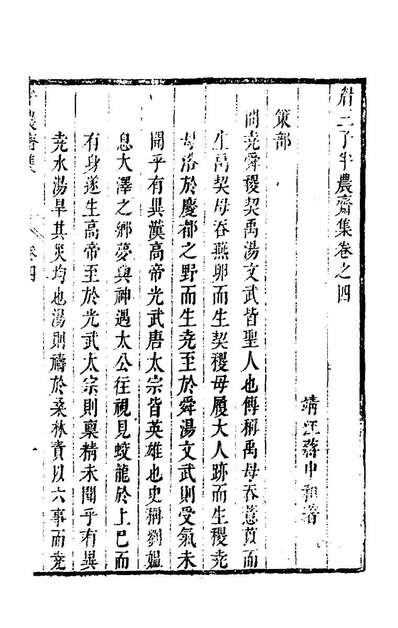 眉三子半農齋集卷之四
靖江蔣中和著
策部
問堯舜稷契禹湯文武皆聖人也傳稱禹母吞薏苡而
生禹契母吞燕卵而生契稷母履大人跡而生稷堯
母洛於慶都之野而生堯至於舜湯文武則受氣未
聞乎有異漢高帝光武唐太宗皆英雄也史稱劉媼
息大澤之鄉夢與神遇太公往視見蛟龍於上已而
有身遂生高帝至於光武太宗則稟精未聞乎有異
堯水湯旱其災均也湯則禱於桑林責以六事而堯
半農齋集
卷四